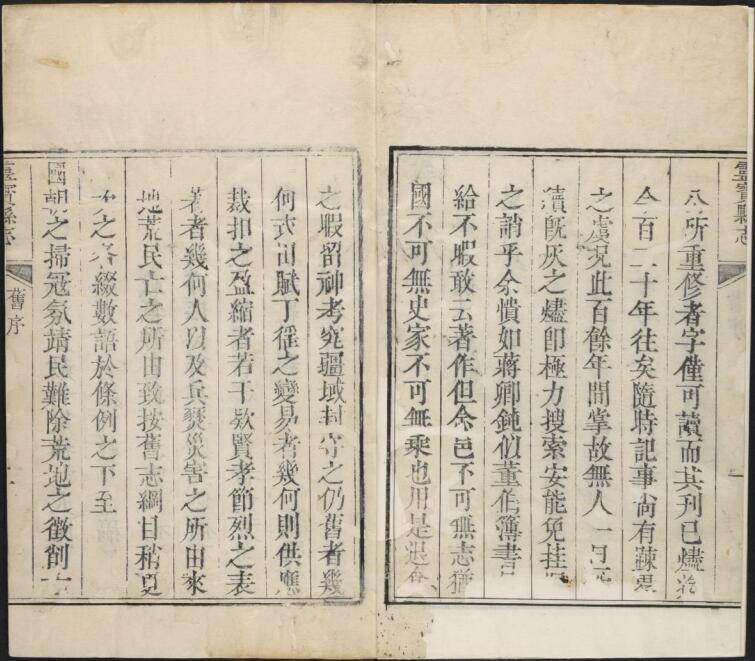 靈寶縣志
公所重修者字僅可讀而其刊已燼於
今百二十年往矣隨時記事尚有疎
之處況此百餘年間掌故無人一日
續既灰之燼即極力搜索安能免挂
之誚乎余憒如蔣卿鈍似董伯簿書
給不暇敢云著作但念邑不可無志猶
國不可無史家不可無乘也用是退食
之暇留神考究疆域封守之仍舊者幾
何戎田賦丁徭之變易者幾何則供應
裁扣之盈縮者若干欵賢孝節烈之表
著者幾何人以及兵燹災害之所由來
地荒民亡之所由致按舊志綱目稍更
次之各綴數語於條例之下至
國朝之掃冦氛靖民難除荒地之徵創
舊序
靈寶縣志